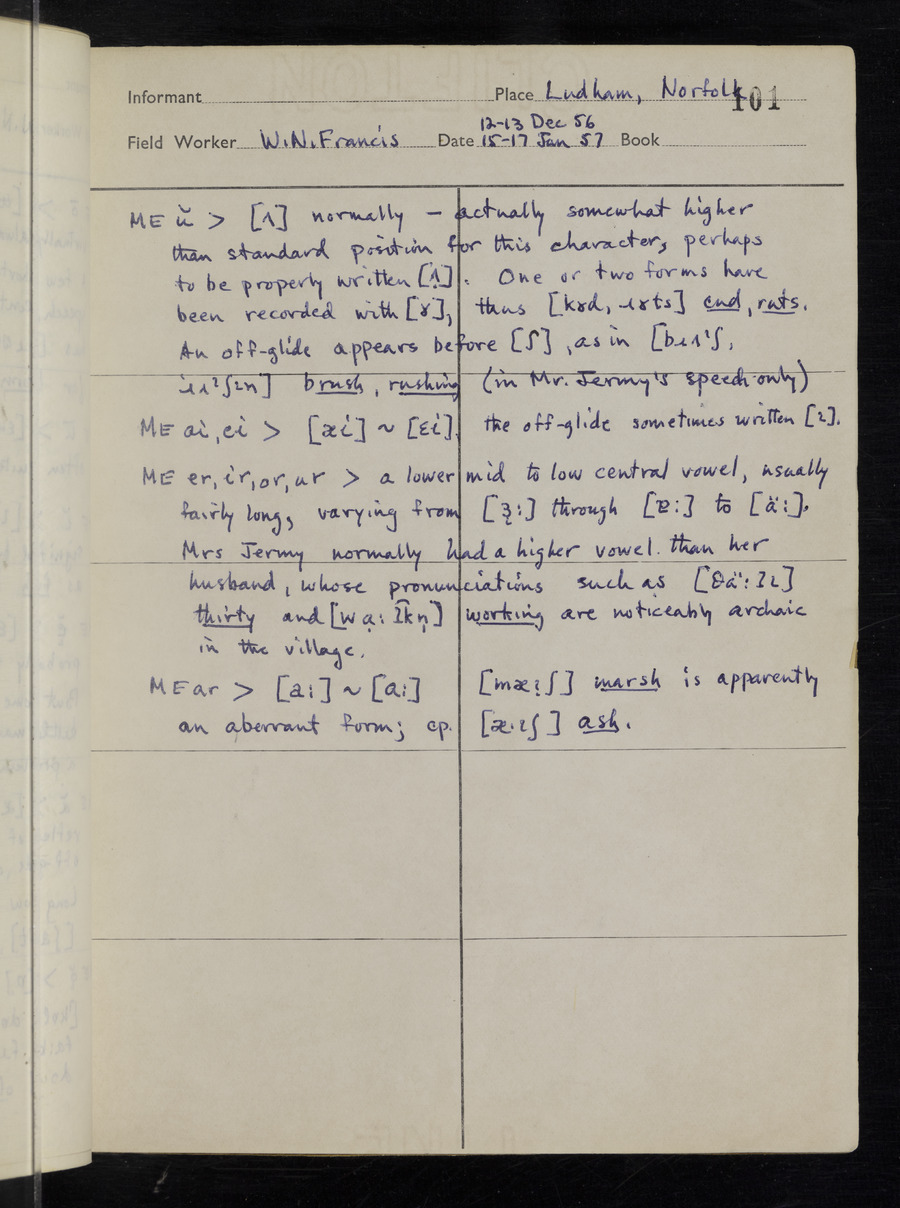 Informant Place Ludham, Norfolk 101
12-13 Dec 56
Field Worker W.N. Francis Date 15-17 Jan 57 Book
ME ŭ > [ʌ] normally – actually somewhat higher
than standard position for this character, perhaps
to be properly written [ʌ̣]. One or two forms have
been recorded with [ɤ], thus [kɤd, ɹɤts] cud, ruts.
An off-glide appears before [ʃ], as in [bɹʌᶦʃ,
ɹʌᶦʃɪn] brush, rushing (in Mr. Jermy's speech only)
ME ai, ei > [æi] ~ [ɛi], the off-glide sometimes written [ɪ].
ME er, ir, or, ur > a lower mid to low central vowel, usually
fairly long, varying from [ɜ̣:] through [ɐ:] to [ä:].
Mrs Jermy normally had a higher vowel than her
husband, whose pronunciations such as [θä:ʔɪ]
thirty and [wạ:ʔkṇ] working are noticeably archaic
in the village.
ME ar > [a:] ~ [ɑ:] [mæɪʃ] marsh is apparently
an aberrant form; cp. [æ·ɪʃ] ash.